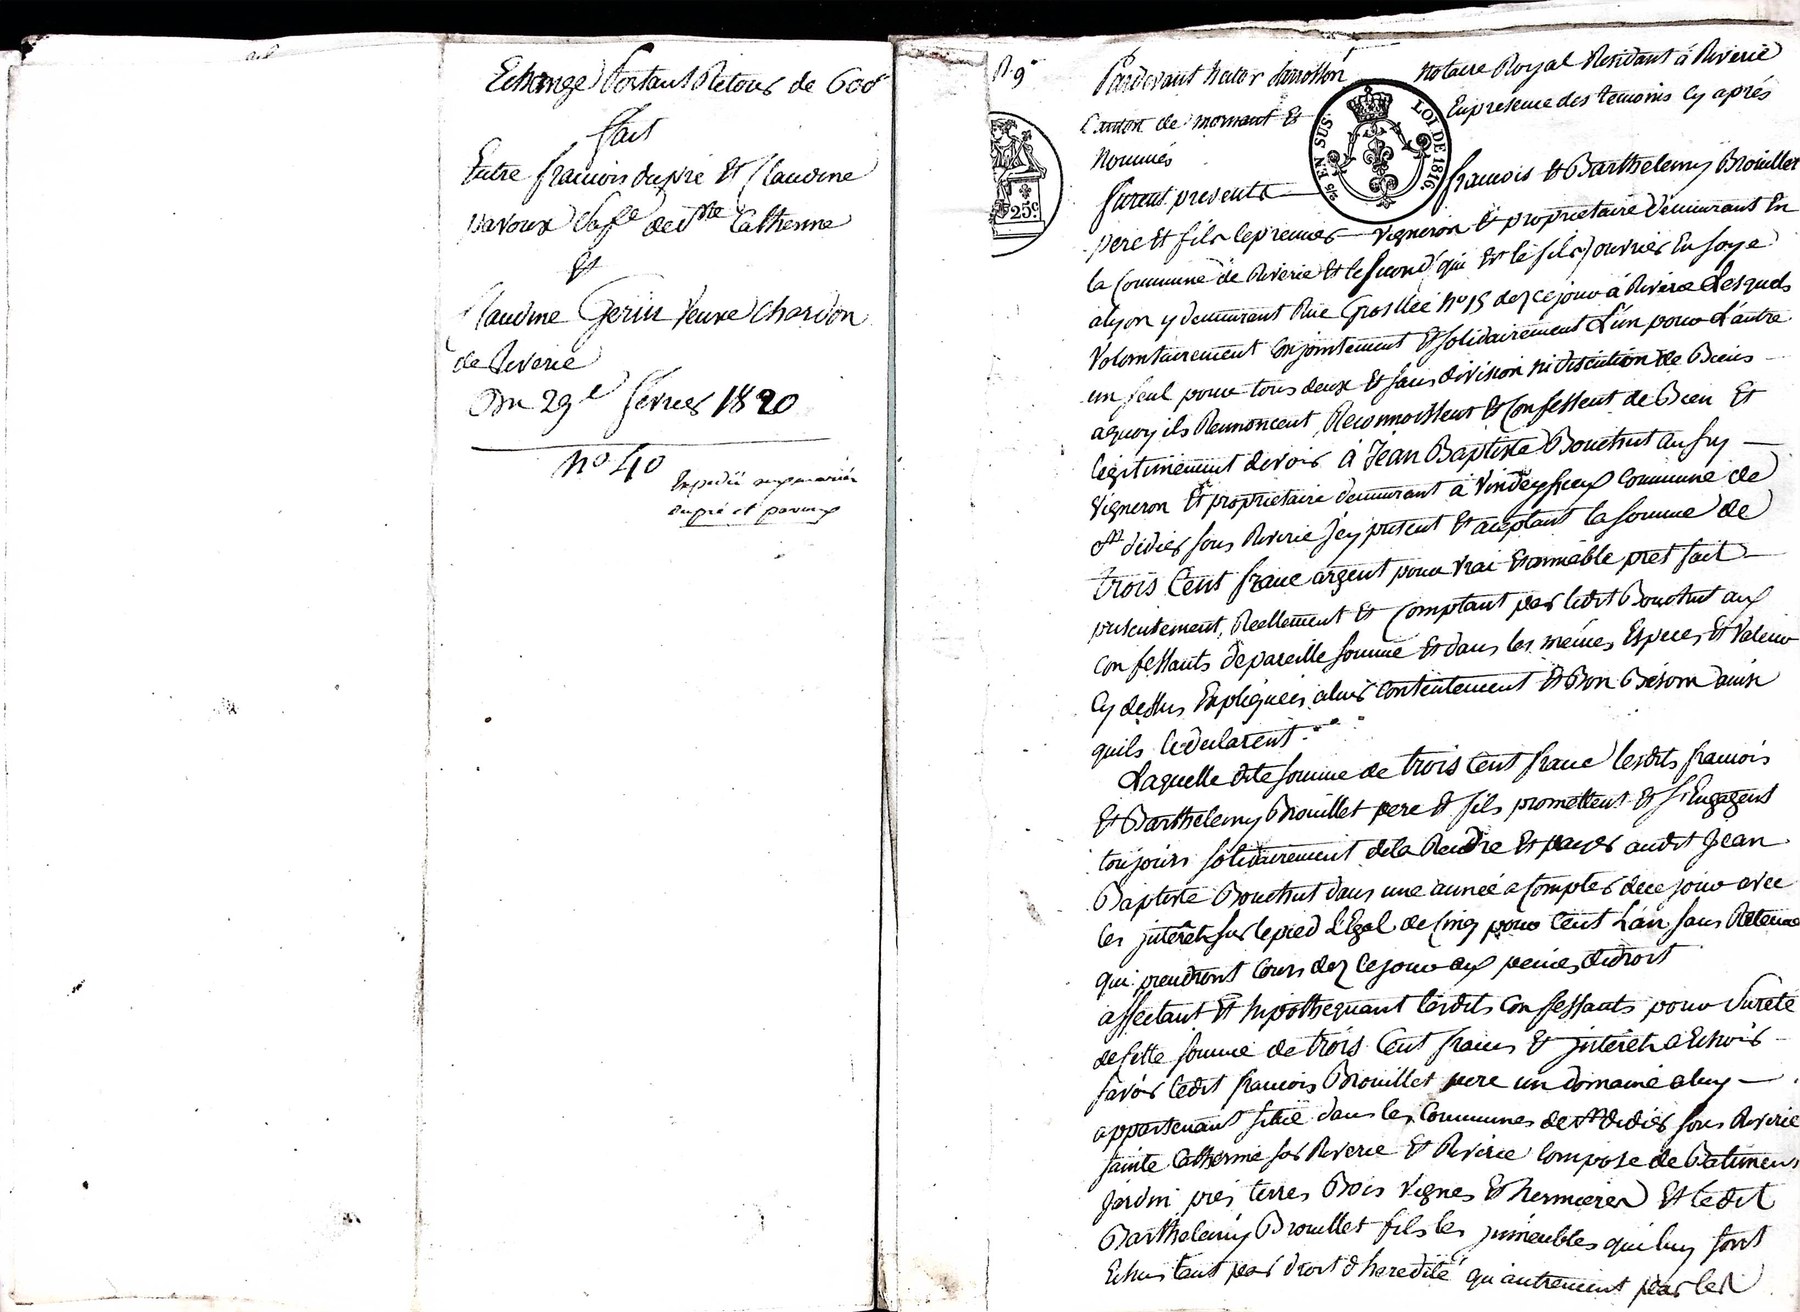 Echange Portant Retour de 600f
fait
Entre francois dupré Et Claudine
pavoux Sa fe de Ste Catherine
Et
Claudine Gerin veuve Chardon
de Riverie
Du 29e février 1820
no 40
Expedié aux mariés
dupré et pavoux
R. 9e
25c
25 EN SUS. LOI DE 1816.
Pardevant notaire Royal Résidant à Riverie
Canton de mornant Et En presence des temoins Cy aprés
Nommés
furent presents francois Et Barthelemy Brouillet
pere Et fils le premier vigneron Et proprietaire demeurant En
la Commune de Riverie Et le second qui Est le fils ouvrier En soye
a lyon y demeurant Rue Groslée no 15 de ce jour à Riverie Lesquels
volontairement Conjointement Et solidairement L'un pour L'autre
un seul pour tous deux Et sans division ni discution de Biens
aquoy ils Renoncent, Reconnoissent Et Confessent de Bien Et
legitimement devoir à Jean Baptiste Bouchut au fry
vigneron Et proprietaire demeurant à Commune de
St didier sous Riverie Jcy present Et aceptant la somme de
trois Cent franc argent pour vrai Et amiable pret fait
presentement, Réellement Et Comptant par ledit Bouchut aux
Confessants de pareille somme Et dans les mémes Especes Et valeur
Cy dessus Expliquées a leur Contentement Et Bon Besoin ainsi
quils le declarent.
Laquelle dite somme de trois Cent franc lesdits francois
Et Barthelemy Brouillet pere Et fils promettent Et s'Engagent
toujours solidairement de la Rendre Et payer audit Jean
Baptiste Bouchut dans une année a Compter de ce jour avec
les jntéréts sur le pied Légal de Cinq pour Cent L'an sans Retenue
qui prendront Cours dez ce jour aux peines de droit
affectant Et hipothequant lesdits Confessants pour Sureté
de Cette somme de trois Cent francs Et jntérêts a Echoir
savoir ledit francois Brouillet pere un domaine a luy
appartenant situé dans les Communes de St didier sous Riverie
sainte Catherine sur Riverie Et Riverie Composé de Batimens
jardin prés terres Bois vignes Et hermieres Et ledit
Barthelemy Brouillet fils les jmmeubles qui luy sont
Echus tant par droit d'heredité qu'autrement par les